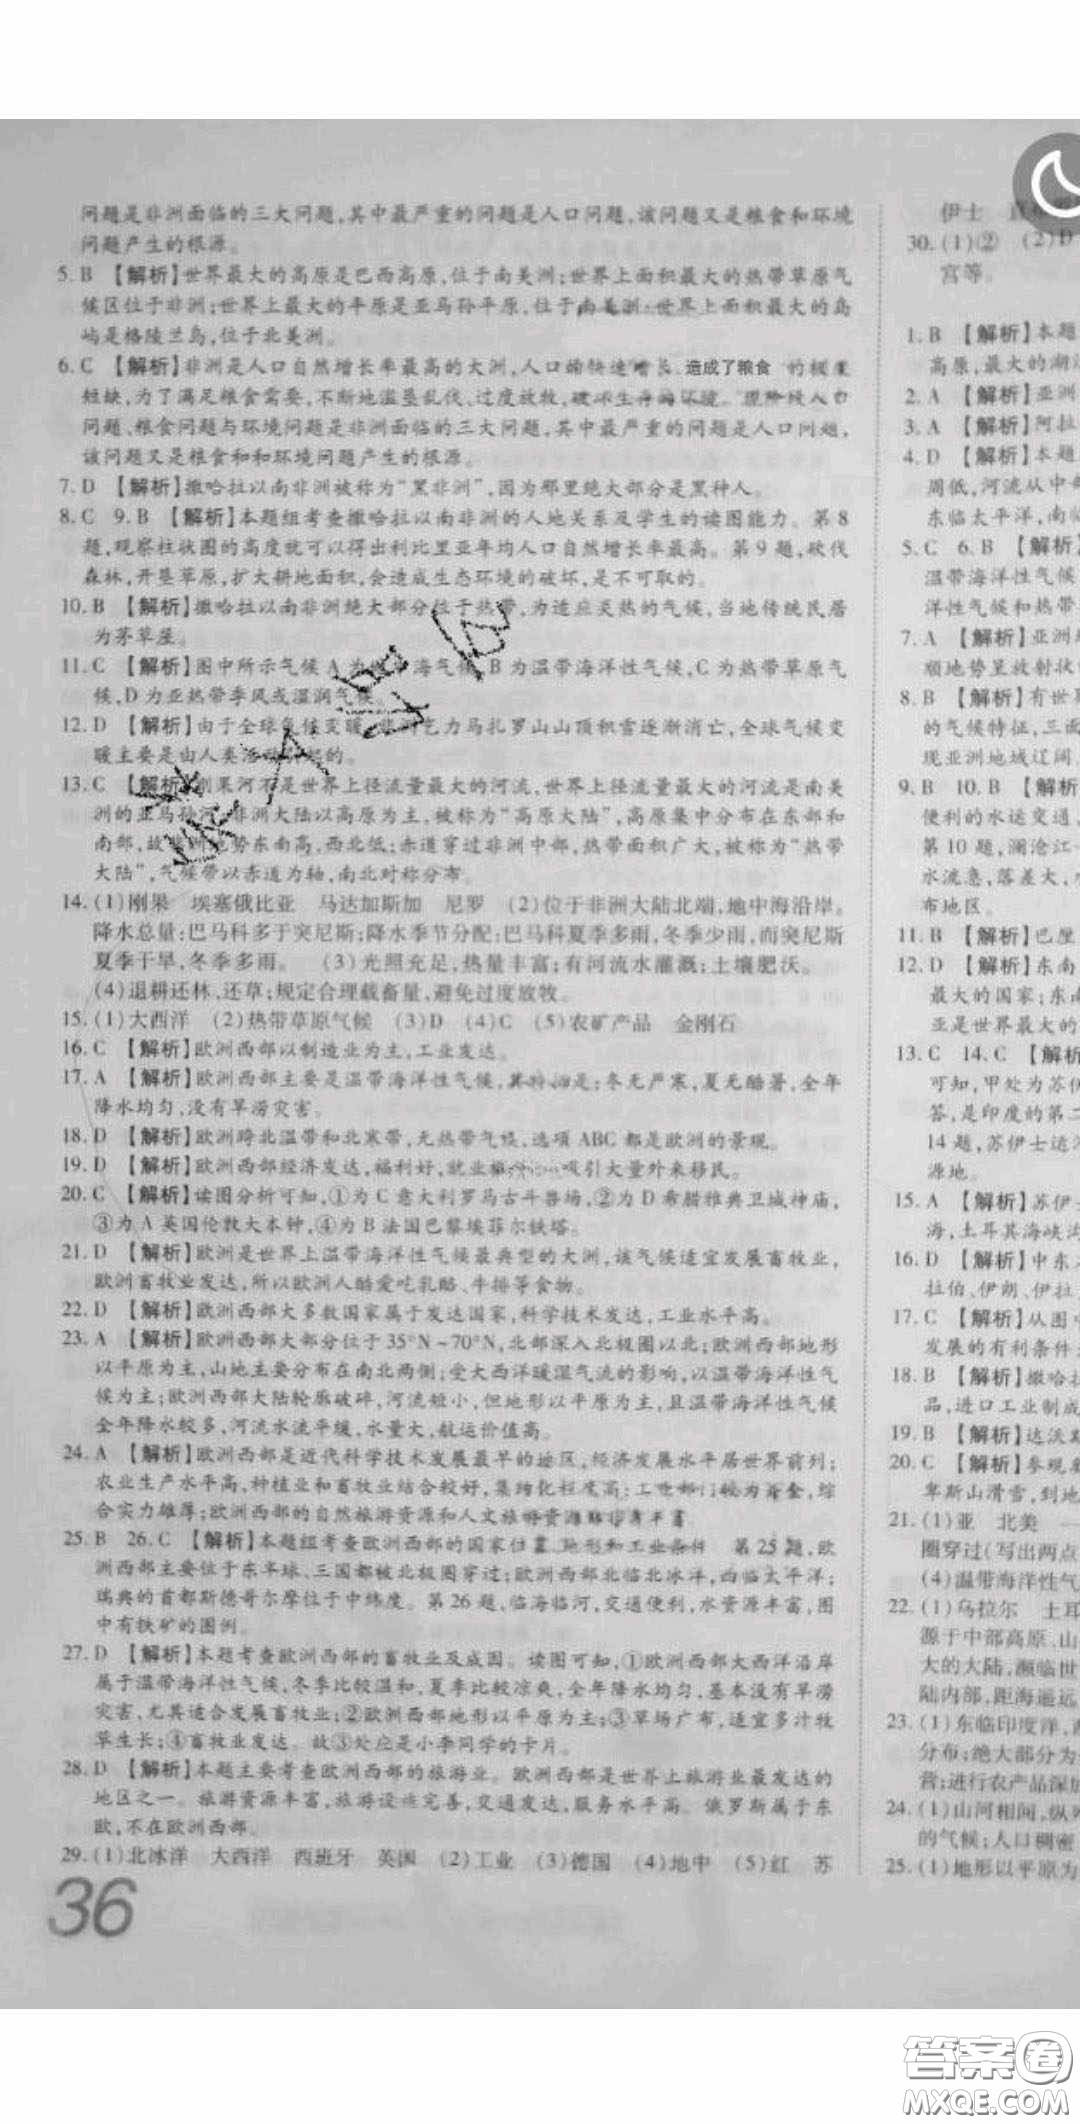 问题是非洲面临的三大问题,其中最严重的问题是人口问题,该问题又是粮食和环境
问题产生的根源。
5. B 【解析】世界最大的高原是巴西高原,位于南美洲;世界上面积最大的热带草原气
候区位于非洲;世界上最大的平原是亚马孙平原,位于南美洲;世界上面积最大的岛
屿是格陵兰岛,位于北美洲。
6. C 【解析】非洲是人口自然增长率最高的大洲,人口的快速增长 造成了粮食 的极度
短缺,为了满足粮食需要,不断地滥垦乱伐、过度放牧,破坏生存环境。现阶段人口
问题、粮食问题与环境问题是非洲面临的三大问题,其中最严重的问题是人口问题,
该问题又是粮食和和环境问题产生的根源。
7. D 【解析】撒哈拉以南非洲被称为“黑非洲”,因为那里绝大部分是黑种人。
8. C 9. B 【解析】本题组考查撒哈拉以南非洲的人地关系及学生的读图能力。第 8
题,观察柱状图的高度就可以得出利比里亚年均人口自然增长率最高。第 9 题,砍伐
森林,开垦草原,扩大耕地面积,会造成生态环境的破坏,是不可取的。
10. B 【解析】撒哈拉以南非洲绝大部分位于热带,为适应炎热的气候,当地传统民居
为茅草屋。
11. C 【解析】图中所示气候 A 为地中海气候,B 为温带海洋性气候,C 为热带草原气
候,D 为亚热带季风或湿润气候。
12. D 【解析】由于全球气候变暖,非洲乞力马扎罗山山顶积雪逐渐消亡,全球气候变
暖主要是由人类活动引起的。
13. C 【解析】刚果河不是世界上径流量最大的河流,世界上径流量最大的河流是南美
洲的亚马孙河;非洲大陆以高原为主,被称为“高原大陆”,高原集中分布在东部和
南部,故地势东南高,西北低;赤道穿过非洲中部,热带面积广大,被称为“热带
大陆”,气候带以赤道为轴,南北对称分布。
14. (1)刚果 埃塞俄比亚 马达加斯加 尼罗 (2)位于非洲大陆北端,地中海沿岸。
降水总量:巴马科多于突尼斯;降水季节分配:巴马科夏季多雨,冬季少雨,而突尼斯
夏季干旱,冬季多雨。 (3)光照充足,热量丰富;有河流水灌溉;土壤肥沃。
(4)退耕还林、还草;规定合理载畜量,避免过度放牧。
15. (1)大西洋 (2)热带草原气候 (3)D (4)C (5)农矿产品 金刚石
16. C 【解析】欧洲西部以制造业为主,工业发达。
17. A 【解析】欧洲西部主要是温带海洋性气候,其特点是:冬无严寒,夏无酷暑,全年
降水均匀,没有旱涝灾害。
18. D 【解析】欧洲跨北温带和北寒带,无热带气候,选项 ABC 都是欧洲的景观。
19. D 【解析】欧洲西部经济发达,福利好,就业 吸引大量外来移民。
20. C 【解析】读图分析可知,①为 C 意大利罗马古斗兽场,②为 D 希腊雅典卫城神庙,
③为 A 英国伦敦大本钟,④为 B 法国巴黎埃菲尔铁塔。
21. D 【解析】欧洲是世界上温带海洋性气候最典型的大洲,该气候适宜发展畜牧业,
欧洲畜牧业发达,所以欧洲人酷爱吃乳酪、牛排等食物。
22. D 【解析】欧洲西部大多数国家属于发达国家,科学技术发达,工业水平高。
23. A 【解析】欧洲西部大部分位于 35°N ~ 70°N,北部深入北极圈以北;欧洲西部地形
以平原为主,山地主要分布在南北两侧;受大西洋暖湿气流的影响,以温带海洋性气
候为主;欧洲西部大陆轮廓破碎,河流短小,但地形以平原为主,且温带海洋性气候
全年降水较多,河流水流平缓,水量大,航运价值高。
24. A 【解析】欧洲西部是近代科学技术发展最早的地区,经济发展水平居世界前列;
农业生产水平高,种植业和畜牧业结合较好,集约化程度高;工业部门较为齐全,综
合实力雄厚;欧洲西部的自然旅游资源和人文旅游资源都非常丰富
25. B 26. C 【解析】本题组考查欧洲西部的国家位置、地形和工业条件 第 25 题,欧
洲西部主要位于东半球,三国都被北极圈穿过;欧洲西部北临北冰洋,西临太平洋;
瑞典的首都斯德哥尔摩位于中纬度。第 26 题,临海临河,交通便利,水资源丰富,图
中有铁矿的图例。
27. D 【解析】本题考查欧洲西部的畜牧业及成因。读图可知,①欧洲西部大西洋沿岸
属于温带海洋性气候,冬季比较温和,夏季比较凉爽,全年降水均匀,基本没有旱涝
灾害,尤其适合发展畜牧业;②欧洲西部地形以平原为主;③草场广布,适宜多汁牧
草生长;④畜牧业发达。故③处应是小李同学的卡片。
28. D 【解析】本题主要考查欧洲西部的旅游业。欧洲西部是世界上旅游业最发达的
地区之一。旅游资源丰富,旅游设施完善,交通发达,服务水平高。俄罗斯属于东
欧,不在欧洲西部。
29. (1)北冰洋 大西洋 西班牙 英国 (2)工业 (3)德国 (4)地中 (5)红 苏
36
伊士 直布
30. (1)② (2)D
宫等。
1. B 【解析】本题
高原,最大的湖泊
2. A 【解析】亚洲
3. A 【解析】阿拉
4. D 【解析】本题
周低,河流从中部
东临太平洋,南临
5. C 6. B 【解析】
温带海洋性气候
洋性气候和热带
7. A 【解析】亚洲地
顺地势呈放射状
8. B 【解析】有世界
的气候特征,三面
现亚洲地域辽阔
9. B 10. B 【解析
便利的水运交通,
第 10 题,澜沧江—
水流急、落差大,
布地区。
11. B 【解析】巴厘
12. D 【解析】东南
最大的国家;东南
亚是世界最大的
13. C 14. C 【解析
可知,甲处为苏伊
答,是印度的第二
14 题,苏伊士运河
源地。
15. A 【解析】苏伊士
海,土耳其海峡沟
16. D 【解析】中东
拉伯、伊朗、伊拉
17. C 【解析】从图中
发展的有利条件
18. B 【解析】撒哈拉
品,进口工业制成
19. B 【解析】达沃斯
20. C 【解析】参观
卑斯山滑雪,到地
21. (1)亚 北美 一
圈穿过(写出两点
(4)温带海洋性气
22. (1)乌拉尔 土耳
源于中部高原,山
大的大陆,濒临世
陆内部,距海遥远
23. (1)东临印度洋,西
分布;绝大部分为
营;进行农产品深加
24. (1)山河相间,纵
的气候;人口稠密
25. (1)地形以平原为
答案圈
MXQE.COM